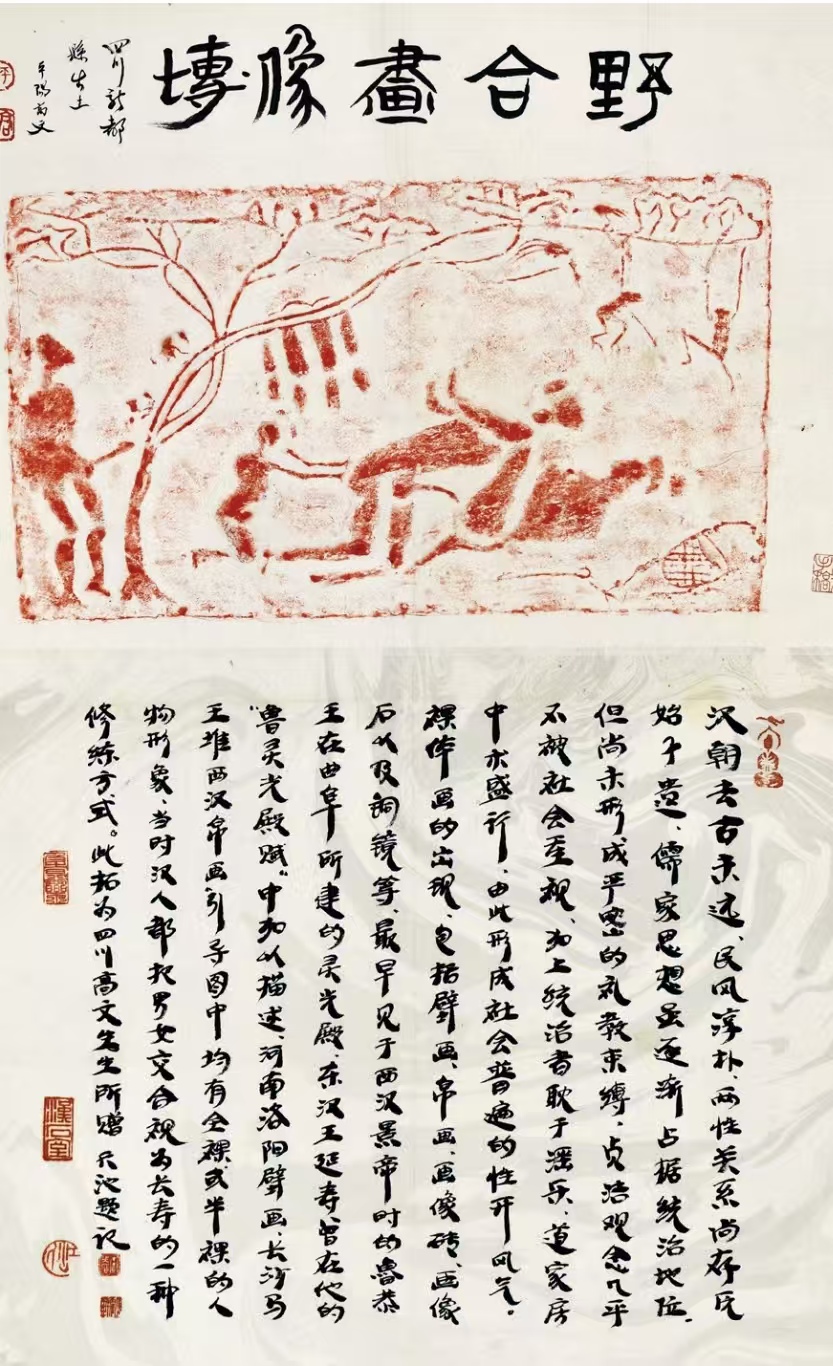 野合畫像塼
四川新都
縣出土
平陽高文
汉朝去古未远、民风淳朴、两性关系尚存氏
始于遗、儒家思想虽逐渐占据统治地位。
但尚未形成严密的礼教束缚、贞洁观念几乎
不被社会重视、加上统治者耽于淫乐、道家房
中术盛行、由此形成社会普遍的性开风气。
裸体画的出现、包括壁画、帛画、画像砖、画像
石以及铜镜等、最早见于西汉景帝时的鲁恭
王在曲阜所建的灵光殿、东汉王延寿曾在他的
“鲁灵光殿赋”中加以描述、河南洛阳壁画、长沙马
王堆西汉帛画引导图中均有全裸或半裸的人
物形象、当时汉人都把男女交合视为长寿的一种
修练方式。此拓为四川高文先生所赠 天池题记